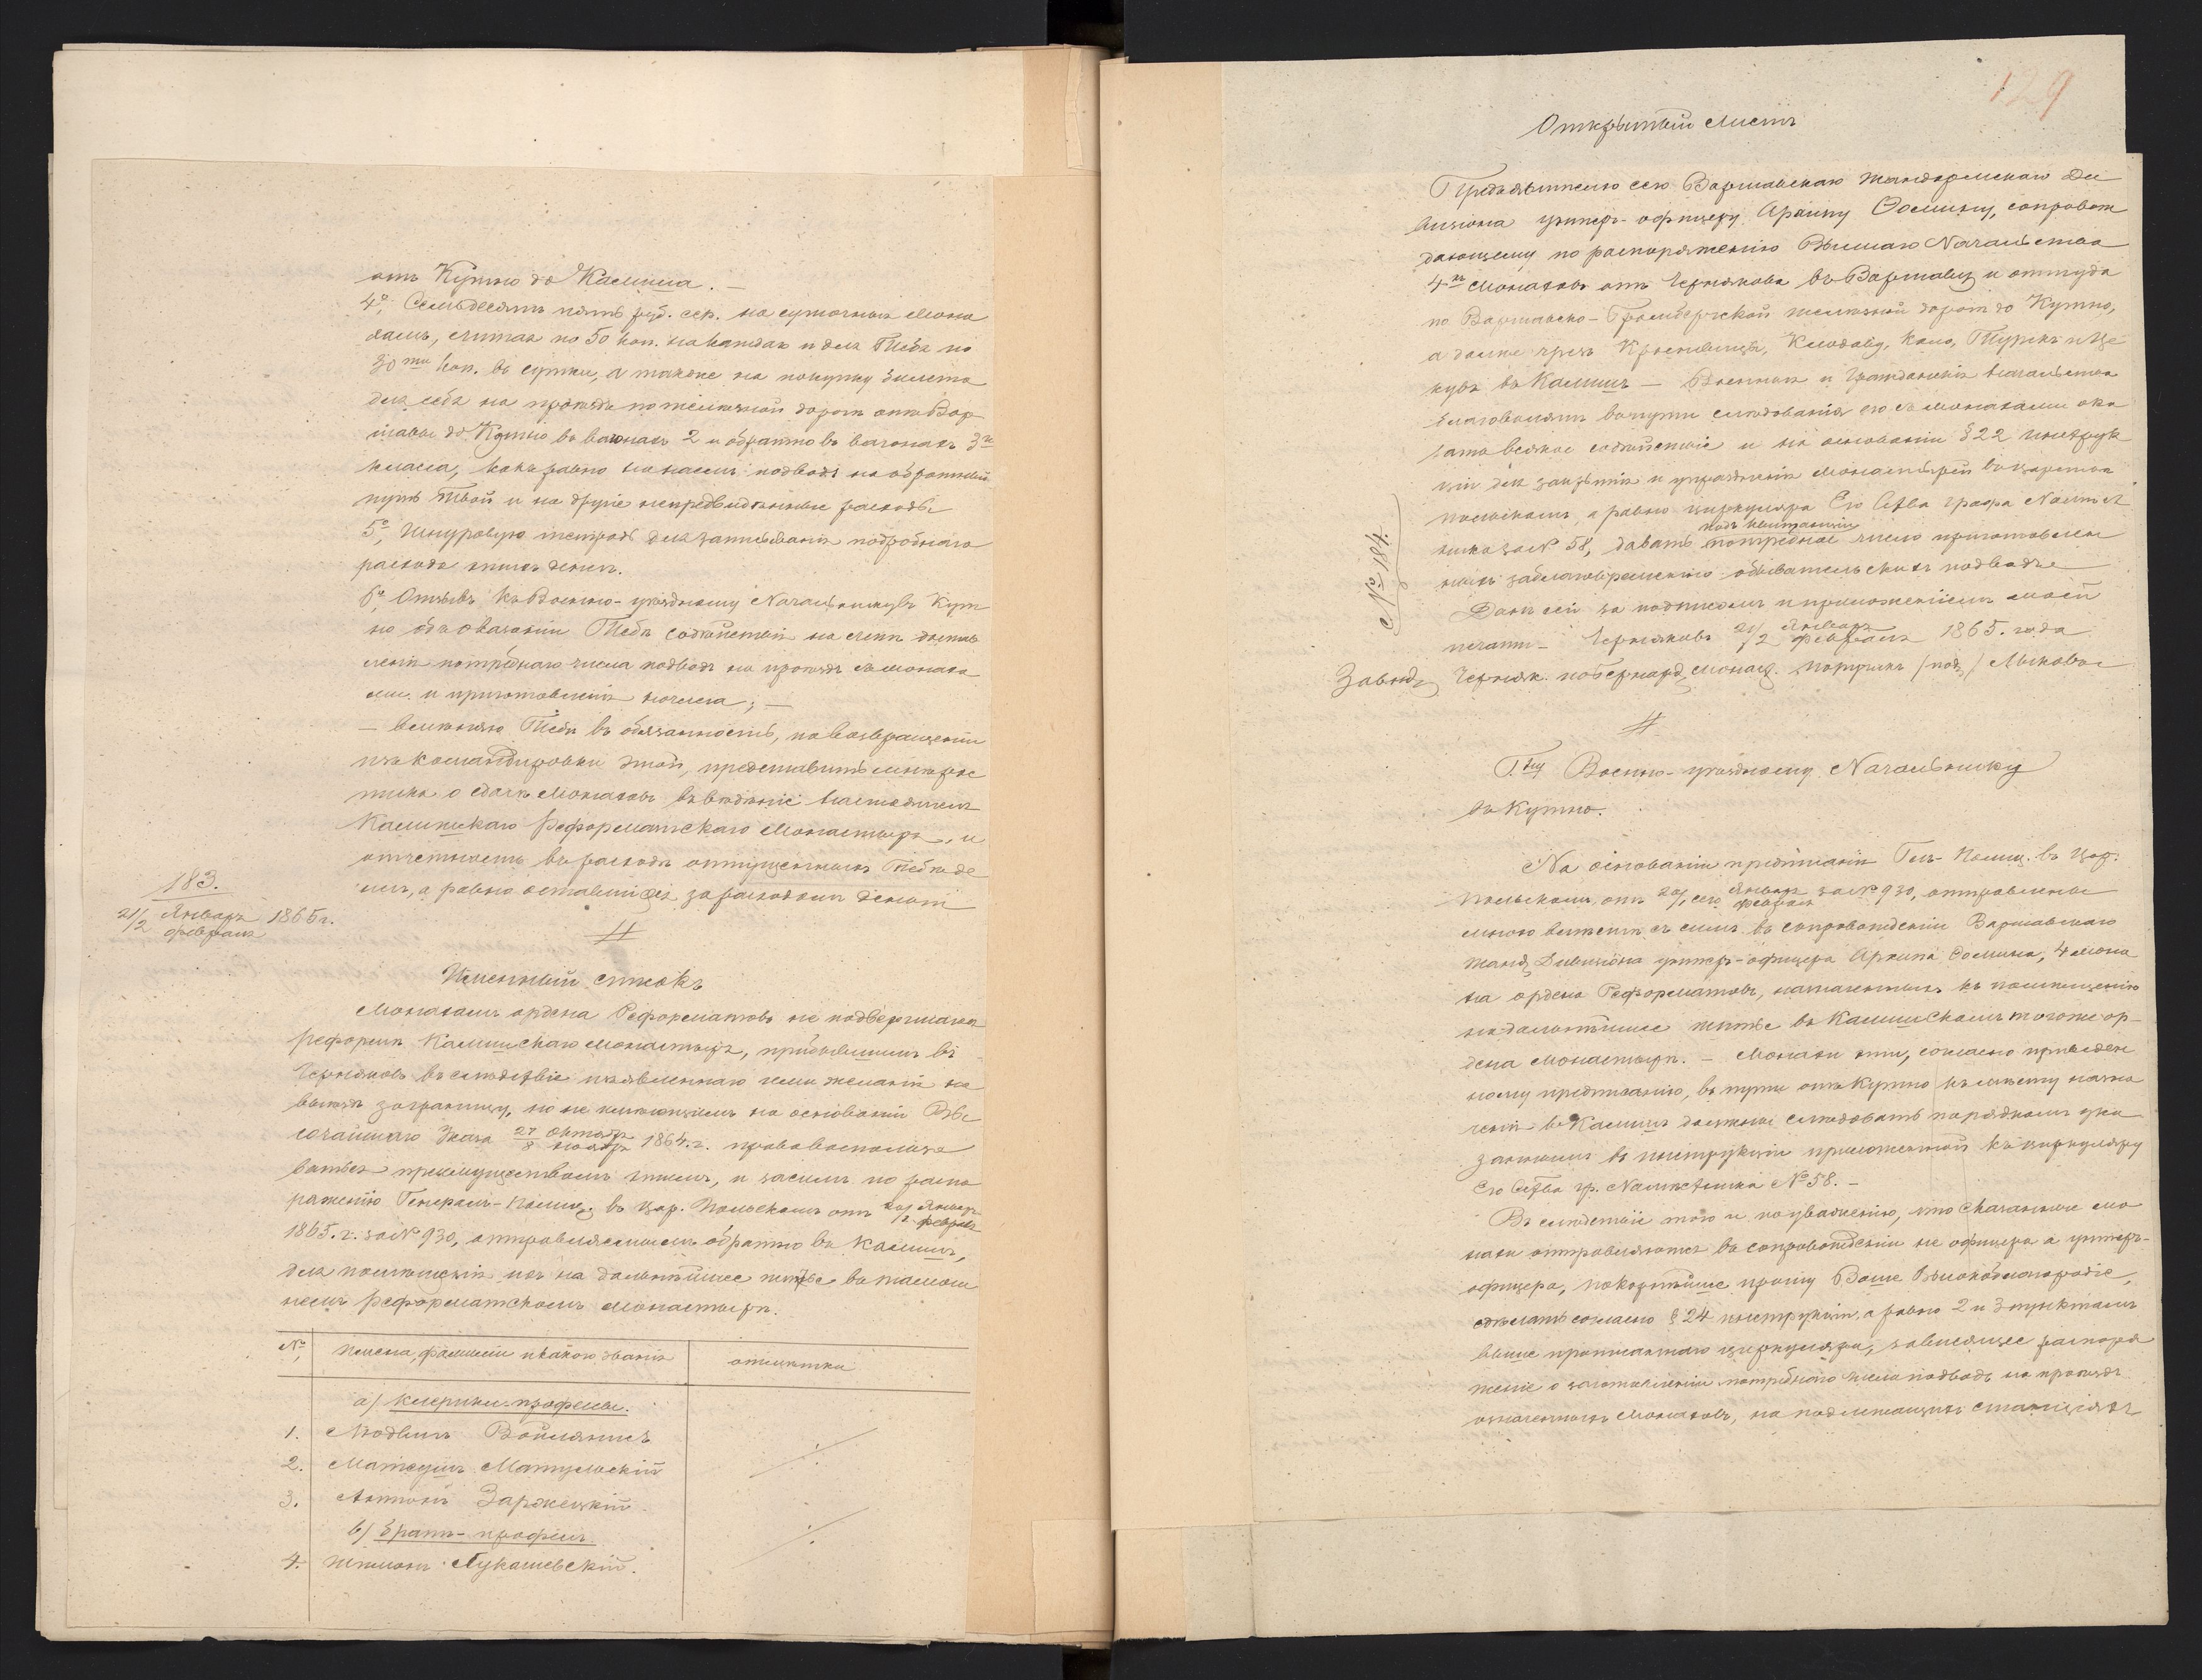 отъ Кутно до Калиша. —
4º, Семьдесятъ пять руб. сер. на суточныя Мона
хамъ, считая по 50 коп. на каждаго и для Тебя по
30ти коп. въ сутки, а также на покупку билета
для себя на проѣздъ по желѣзной дорогѣ отъ Вар
шавы до Кутно въ вагонахъ 2 и обратно въ вагонахъ 3го
класса, какъ равно на наемъ подводъ на обратный
путь твой и на другіе непредвидѣнные расходы
5º, Шнуровую тетрадь для записыванія подробнаго
расхода этихъ денегъ.
6º, Отзывъ къ Военно-уѣздному Начальнику въ Кут
но объ оказаніи Тебѣ содѣйствія на счетъ достав
ленія потребнаго числа подводъ на проѣздъ съ монаха
ми и приготовленія ночлега; —
— вмѣняю Тебѣ въ обязанность, по возвращеніи
изъ командировки этой, представить мнѣ рос
писку о сдачѣ Монаховъ въ вѣденіе настоятеля
Калишскаго Реформатскаго Монастыря, и
отчетность въ расходѣ отпущенныхъ Тебѣ де
негъ, а равно оставшіяся за расходомъ деньги
183.
21/2 Января/Февраля 1865 г.
Именный списокъ
Монахамъ ордена Реформатовъ не подвергшагося
реформѣ Калишскаго Монастыря, прибывшимъ въ
Черняковъ въ слѣдствіе изъявленнаго ими желанія на
выѣздъ заграницу, но не имѣющимъ на основаніи Высо
чайшаго Указа 27/8 Октября/Ноября 1864 г. права воспользо
ваться преимуществомъ этимъ, и засимъ по распо
ряженію Генералъ-Полиц. въ Цар. Польскомъ отъ 20/1 Января/Февраля
1865 г. за № 930, отправляемымъ обратно въ Калишъ,
для помѣщенія ихъ на дальнѣйшее житье въ тамош
немъ Реформатскомъ Монастырѣ.
№ | Имена, фамиліи и какого званія | отмѣтки
а) Клерики-профессы.
1. Людвигъ
2. Матеушъ Матушевскій
3. Антоній Заржецкій
b) братъ-профессъ
4. Шимонъ Лукашевскій.
129
Открытый Листъ
Предъявителю сего Варшавскаго Жандармскаго Ди
визіона унтеръ-офицеру Архипу Фомину, сопровож
дающему по распоряженію Высшаго Начальства
4хъ Монаховъ отъ Чернякова въ Варшаву и оттуда
по Варшавско-Бромбергской желѣзной дорогѣ до Кутно,
а далѣе чрезъ Кросневицы, Клодаву, Коло, Турекъ и Це
ковъ въ Калишъ — Военныя и Гражданскія Начальства
благоволятъ въ пути слѣдованія его съ Монахами ока
зать всякое содѣйствіе и на основаніи § 22 инструк
ціи для закрытія и упраздненія Монастырей въ Царствѣ
Польскомъ, а равно циркуляра Его Сіятва Графа Намѣст
ника за № 58, давать подъ квитанціи потребное число приготовлен
ныхъ заблаговременно обывательскихъ подводъ
Данъ сей за подписомъ и приложеніемъ моей
печати — Черняковъ 21/2 Января/Февраля 1865 года
Завѣд. Черняк. по Бернард. Монас. Поручикъ (под.) Лыковъ
№ 184.
Г.ну Военно-уѣздному Начальнику
въ Кутно.
На основаніи предписанія Ген-Полиц. въ Цар.
Польскомъ отъ 20/1 сего Января/Февраля за № 930, отправлены
мною вмѣстѣ съ симъ въ сопровожденіи Варшавскаго
Жанд. Дивизіона унтеръ-офицера Архипа Фомина, 4 мона
ха ордена Реформатовъ, назначенныхъ къ помѣщенію
на дальнѣйшее житье въ Калишскомъ того же ор
дена Монастырѣ. — Монахи эти, согласно приведен
ному предписанію, въ пути отъ Кутно къ мѣсту назна
ченія въ Калишъ должны слѣдовать порядкомъ ука
заннымъ въ инструкціи приложенной къ циркуляру
Его Сіятва гр. Намѣстника № 58. —
Въ слѣдствіе того и по уваженію, что сказанные мо
нахи отправляются въ сопровожденіи не офицера а унтеръ-
офицера, покорнѣйше прошу Ваше Высокоблагородіе,
сдѣлать согласно § 24 инструкціи, а равно 2 и 3 пунктамъ
выше прописаннаго циркуляра, зависящее распоря
женіе о заготовленіи потребнаго числа подводъ на проѣздъ
означенныхъ Монаховъ, на подлежащихъ станціяхъ